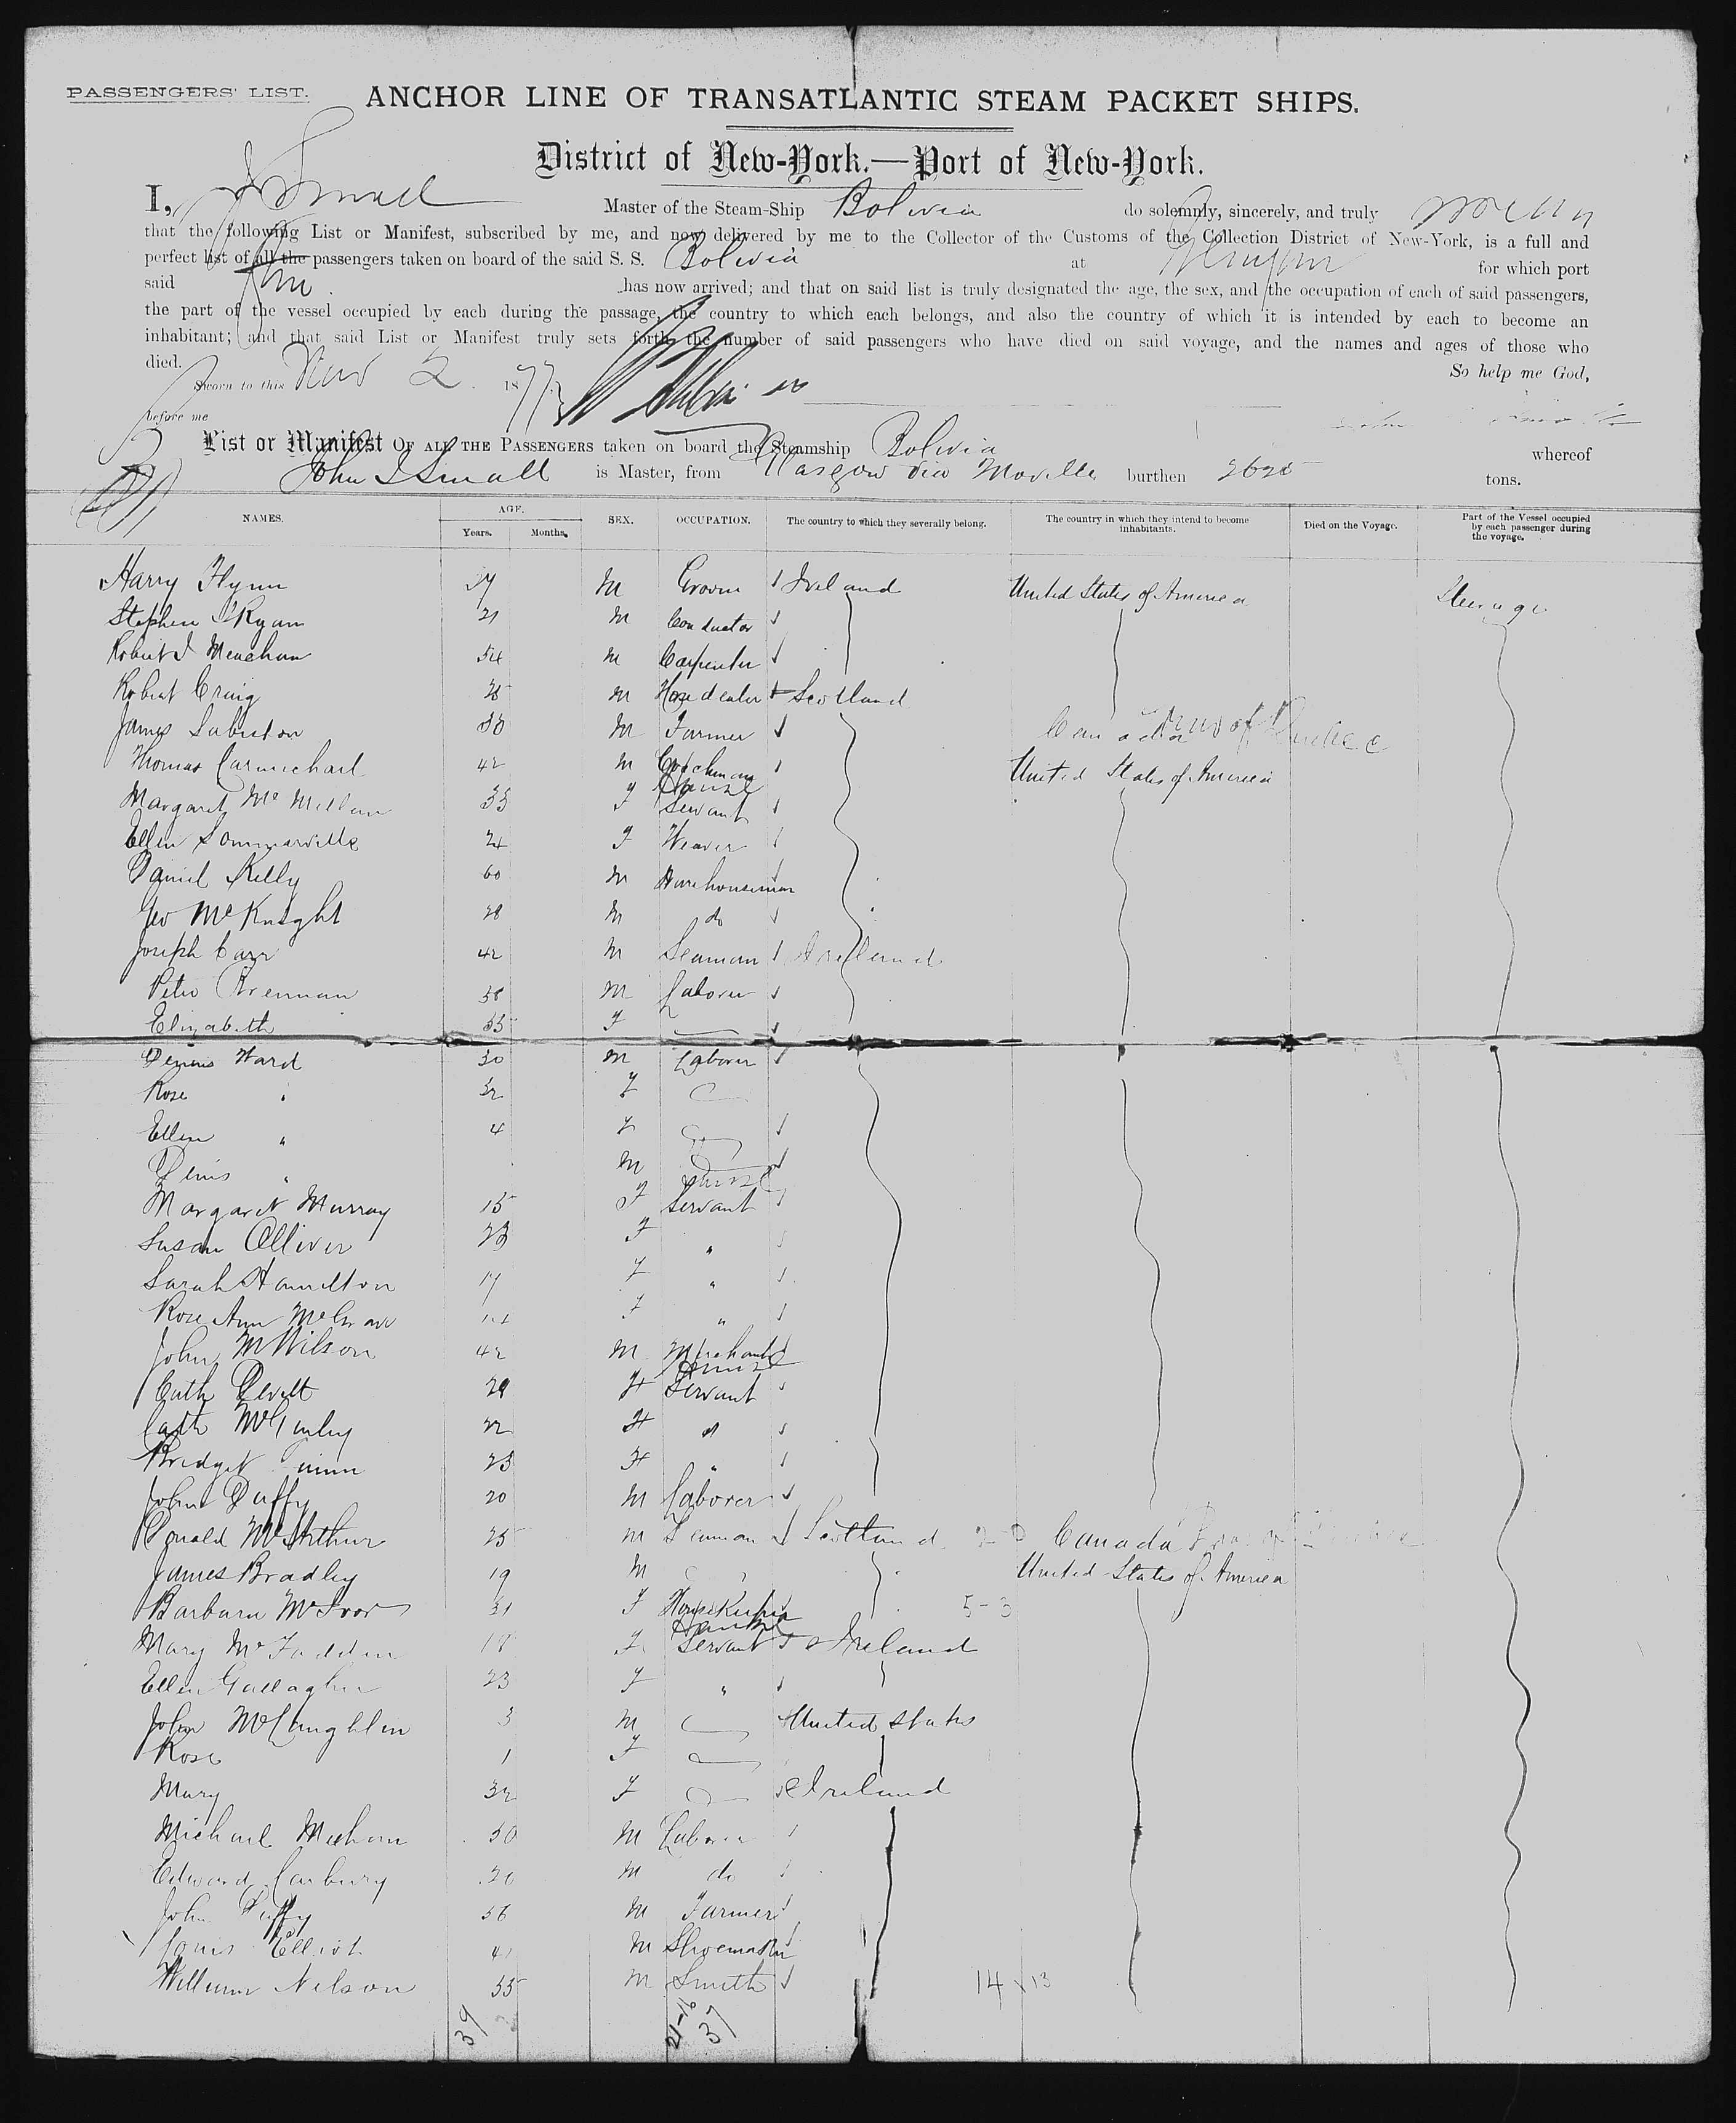 PASSENGERS' LIST.
ANCHOR LINE OF TRANSATLANTIC STEAM PACKET SHIPS.
District of New-York.—Port of New-York.
I, J Small Master of the Steam-Ship Bolivia do solemnly, sincerely, and truly
that the following List or Manifest, subscribed by me, and now delivered by me to the Collector of the Customs of the Collection District of New-York, is a full and
perfect list of all the passengers taken on board of the said S. S. Bolivia at for which port
said has now arrived; and that on said list is truly designated the age, the sex, and the occupation of each of said passengers,
the part of the vessel occupied by each during the passage, the country to which each belongs, and also the country of which it is intended by each to become an
inhabitant; and that said List or Manifest truly sets forth the number of said passengers who have died on said voyage, and the names and ages of those who
died. So help me God,
Sworn to this Nov 2. 1877
before me
List or Manifest OF ALL THE PASSENGERS taken on board the Steamship Bolivia whereof
John S Small is Master, from Glasgow via Moville burthen 2626 tons.
NAMES. AGE. SEX. OCCUPATION. The country to which they severally belong. The country in which they intend to become inhabitants. Died on the Voyage. Part of the Vessel occupied by each passenger during the voyage.
Years. Months.
Harry Flynn M Groom Ireland United States of America Steerage
Stephen Ryan 21 M Conductor
Robert J Meacham 54 M Carpenter
Robert Craig M Scotland
James Sabiston M Farmer Canada Prov of Quebec
Thomas Carmichael 42 M Coachman United States of America
Margaret McMillan 33 F House Servant
Ellen Sommerville 24 F Weaver
Daniel Kelly 60 M Warehouseman
Geo McKnight 28 M do
Joseph Carr 42 M Seaman Ireland
Peter Brennan 38 M Laborer
Elizabeth 35 F
Dennis Ward 30 M Laborer
Rose " 32 F
Ellen " 4 F
Denis " M
Margaret Murray 15 F House Servant
Susan Olliver 23 F "
Sarah Hamilton 17 F "
Rose Ann F "
John M Wilson 42 M Merchant
Cath Devitt 29 F House Servant
Cath McGinley 22 F "
Bridget 23 F "
John Duffy 20 M Laborer
Donald McArthur 25 M Seaman Scotland Canada
James Bradley 19 M United States of America
Barbara McIvor 31 F Housekeeper 5-3
Mary McFadden 18 F House Servant Ireland
Ellen Gallagher 23 F "
John McLaughlin 3 M United States
Rose 1 F
Mary 32 F Ireland
Michael Meehan 50 M Laborer
Edward Carbury 20 M do
John Duffy 56 M Farmer
Elliot 41 M Shoemaker
William Nelson 35 M Smith 14 13
39 21-16
37